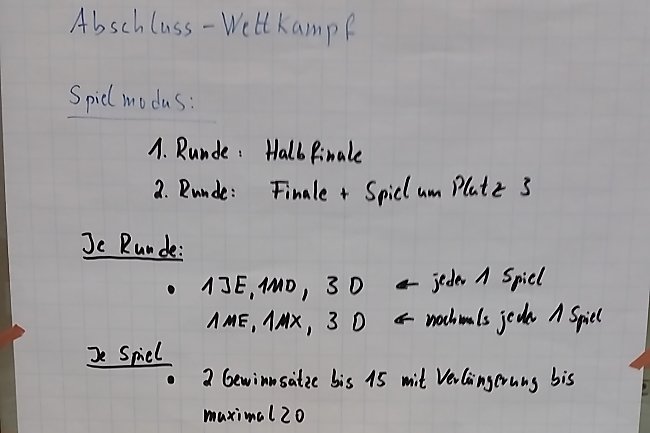 Abschluss - Wettkampf
Spielmodus:
1. Runde: Halbfinale
2. Runde: Finale + Spiel um Platz 3
Je Runde:
• 1 JE, 1 MD, 3 D ← jeder 1 Spiel
1 ME, 1 MX, 3 D ← nochmals jeder 1 Spiel
Je Spiel
• 2 Gewinnsätze bis 15 mit Verlängerung bis
maximal 20